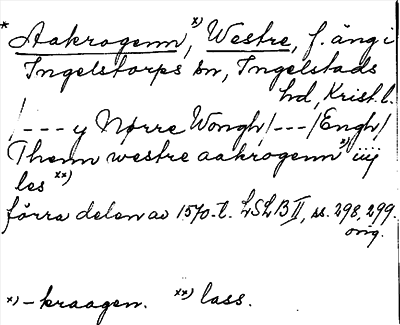 * Aakrogenn, x) Westre, f. äng i
Ingelstorps sn, Ingelstads
hd, Krist. l.
/--- y Nørre Wongh/---/Engh/
Thenn westre aakrogenn x) iiij
les xx)
förra delen av 1570-t. LSLB II, ss. 298, 299.
orig.
x) -kraagen. xx) lass.